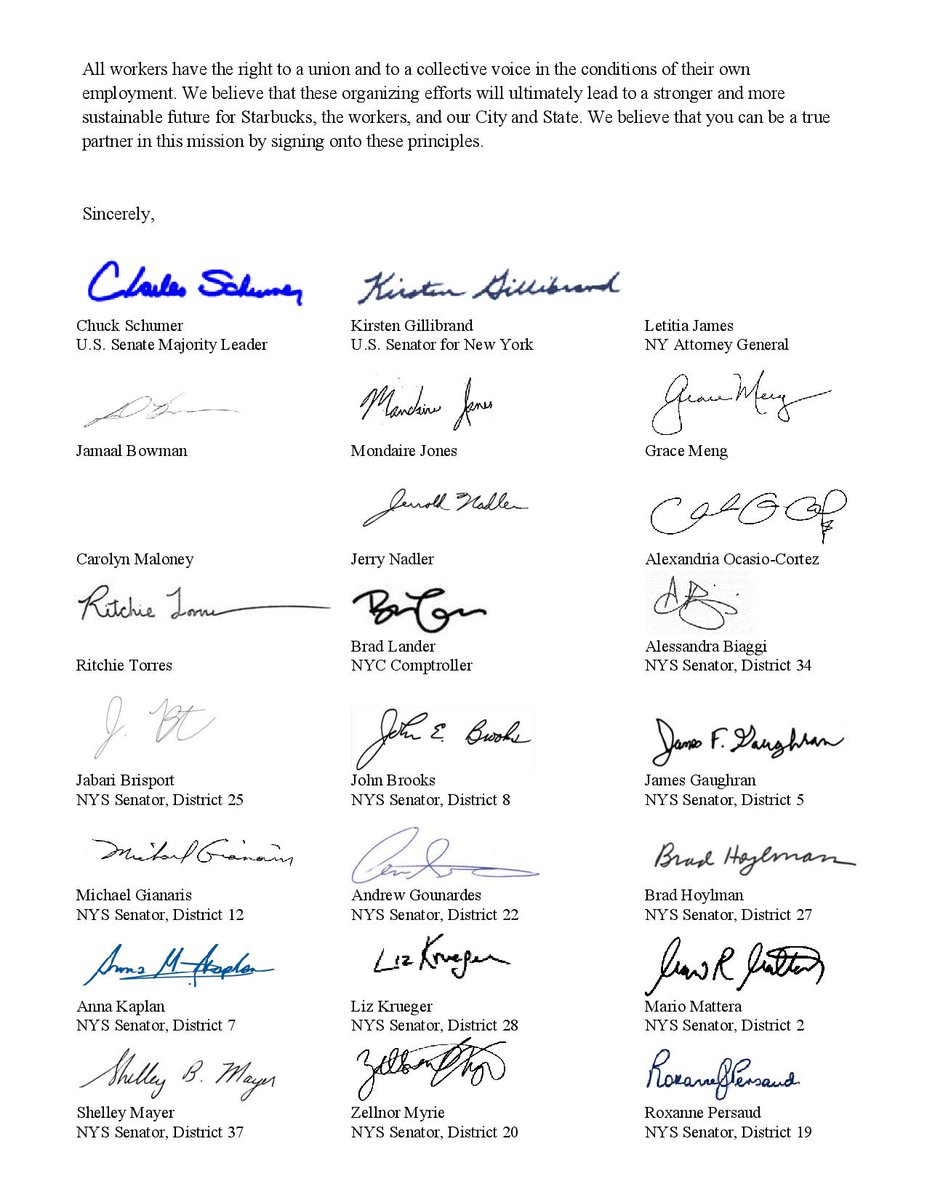 All workers have the right to a union and to a collective voice in the conditions of their own
employment. We believe that these organizing efforts will ultimately lead to a stronger and more
sustainable future for Starbucks, the workers, and our City and State. We believe that you can be a true
partner in this mission by signing onto these principles.
Sincerely,
Charles Schumer Kirsten Gillibrand
Chuck Schumer Kirsten Gillibrand Letitia James
U.S. Senate Majority Leader U.S. Senator for New York NY Attorney General
Mondaire Jones Grace Meng
Jamaal Bowman Mondaire Jones Grace Meng
Jerrold Nadler
Carolyn Maloney Jerry Nadler Alexandria Ocasio-Cortez
Ritchie Torres
Brad Lander Alessandra Biaggi
Ritchie Torres NYC Comptroller NYS Senator, District 34
John E. Brooks James F. Gaughran
Jabari Brisport John Brooks James Gaughran
NYS Senator, District 25 NYS Senator, District 8 NYS Senator, District 5
Michael Gianaris Brad Hoylman
Michael Gianaris Andrew Gounardes Brad Hoylman
NYS Senator, District 12 NYS Senator, District 22 NYS Senator, District 27
Anna M. Kaplan Liz Krueger
Anna Kaplan Liz Krueger Mario Mattera
NYS Senator, District 7 NYS Senator, District 28 NYS Senator, District 2
Shelley B. Mayer Roxanne J Persaud
Shelley Mayer Zellnor Myrie Roxanne Persaud
NYS Senator, District 37 NYS Senator, District 20 NYS Senator, District 19